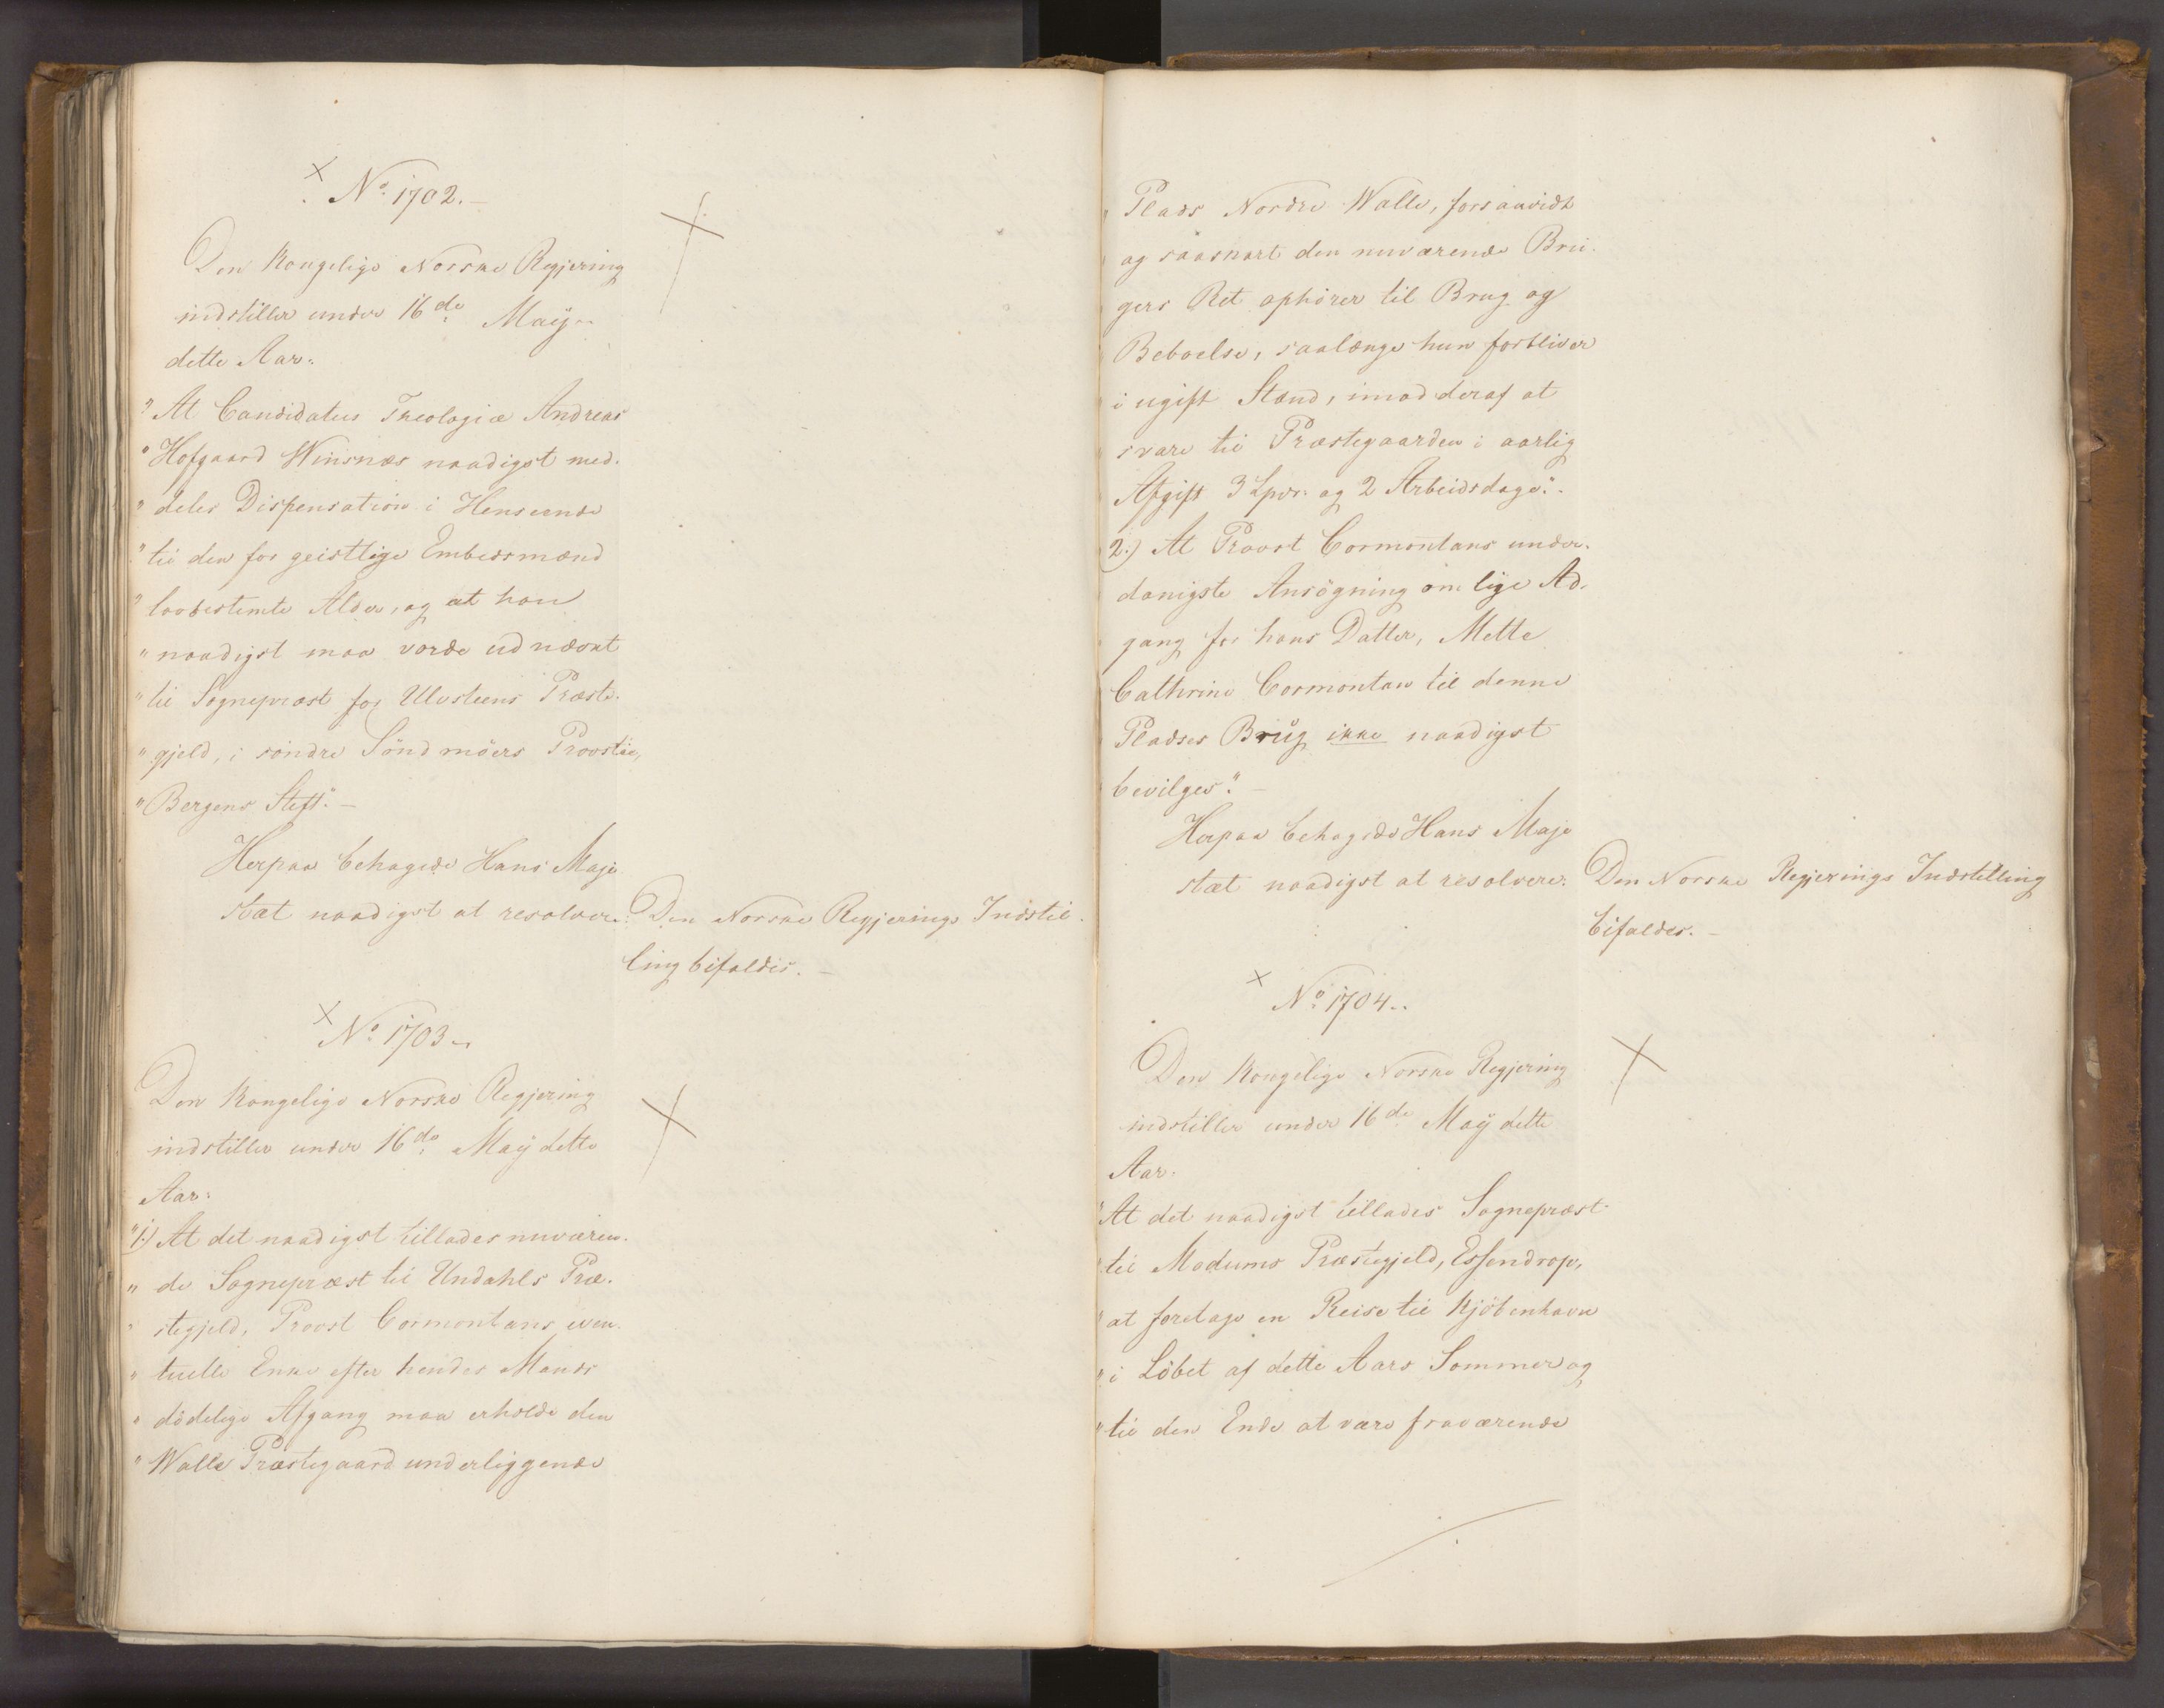 No 1702.—
Den Kongelige Norske Regjering
indstiller under 16de May
dette Aar:
"At Candidatus Theologiæ Andreas
"Hofgaard Winsnæs naadigst med-
"deles Dispensation i Henseende
"til den for geistlige Embedsmænd
"lovbestemte Alder, og at han
"naadigst maa vorde udnævnt
"til Sognepræst for Ulvsteens Præste-
"gjeld, i søndre Søndmøers Provstie,
"Bergens Stift."—
Herpaa behagede Hans Maje-
stæt naadigst at resolvere: Den Norske Regjerings Indstil-
ling bifaldes.—
No 1703.
Den Kongelige Norske Regjering
indstiller under 16de May dette
Aar:
"1.) At det naadigst tillades nuværen-
"de Sognepræst til Undahls Præ-
"stegjeld, Provst Cormontans even-
"tuelle Enke efter hendes Mands
"dødelige Afgang maa erholde den
"Walle Præstegaard underliggende
"Plads Nordre Walle, forsaavidt
og saasnart den nuværende Bru-
gers Ret ophører til Brug og
Beboelse, saalænge hun forbliver
i ugift Stand, imod deraf at
svare til Præstegaarden i aarlig
Afgift 3 Spdr. og 2 Arbeidsdage".
2.) At Provst Cormontans under-
danigste Ansøgning om lige Ad-
gang for hans Datter, Mette
Cathrine Cormontan til denne
Pladses Brug ikke naadigst
bevilges".—
Herpaa behagede Hans Maje
stæt naadigst at resolvere: Den Norske Regjerings Indstilling
bifaldes.—
No 1704.
Den Kongelige Norske Regjering
indstiller under 16de May dette
Aar.
"At det naadigst tillades Sognepræst
"til Modums Præstegjeld, Essendrop,
"at foretage en Reise til Kjøbenhavn
"i Løbet af dette Aars Sommer og
"til den Ende at være fraværende